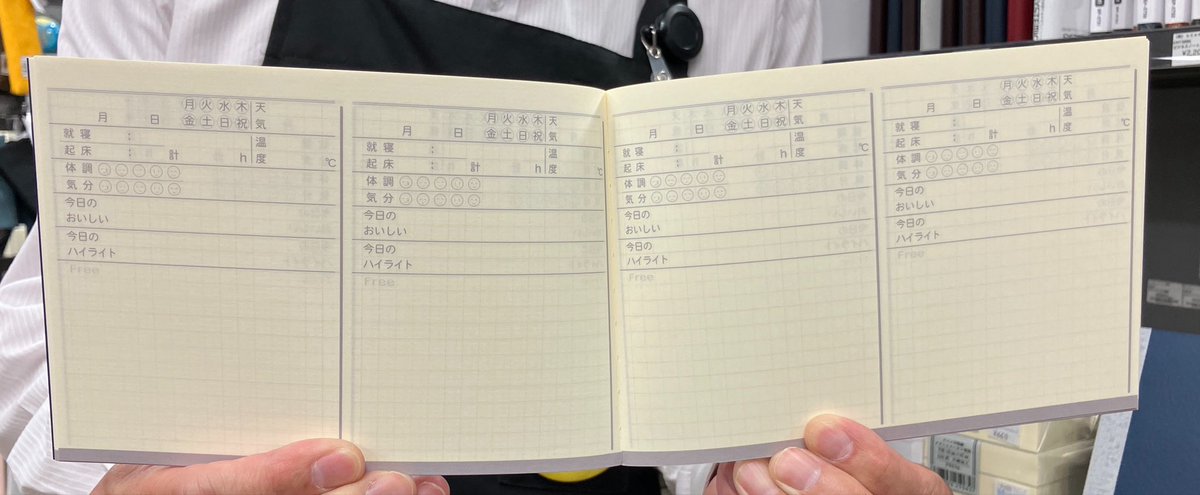 月火水木 天
月 日 金土日祝 気
就寝 : 温
起床 : 計 h 度 ℃
体調
気分
今日の
おいしい
今日の
ハイライト
Free
月火水木 天
月 日 金土日祝 気
就寝 : 温
起床 : 計 h 度 ℃
体調
気分
今日の
おいしい
今日の
ハイライト
Free
月火水木 天
月 日 金土日祝 気
就寝 : 温
起床 : 計 h 度 ℃
体調
気分
今日の
おいしい
今日の
ハイライト
Free
月火水木 天
月 日 金土日祝 気
就寝 : 温
起床 : 計 h 度 ℃
体調
気分
今日の
おいしい
今日の
ハイライト
Free